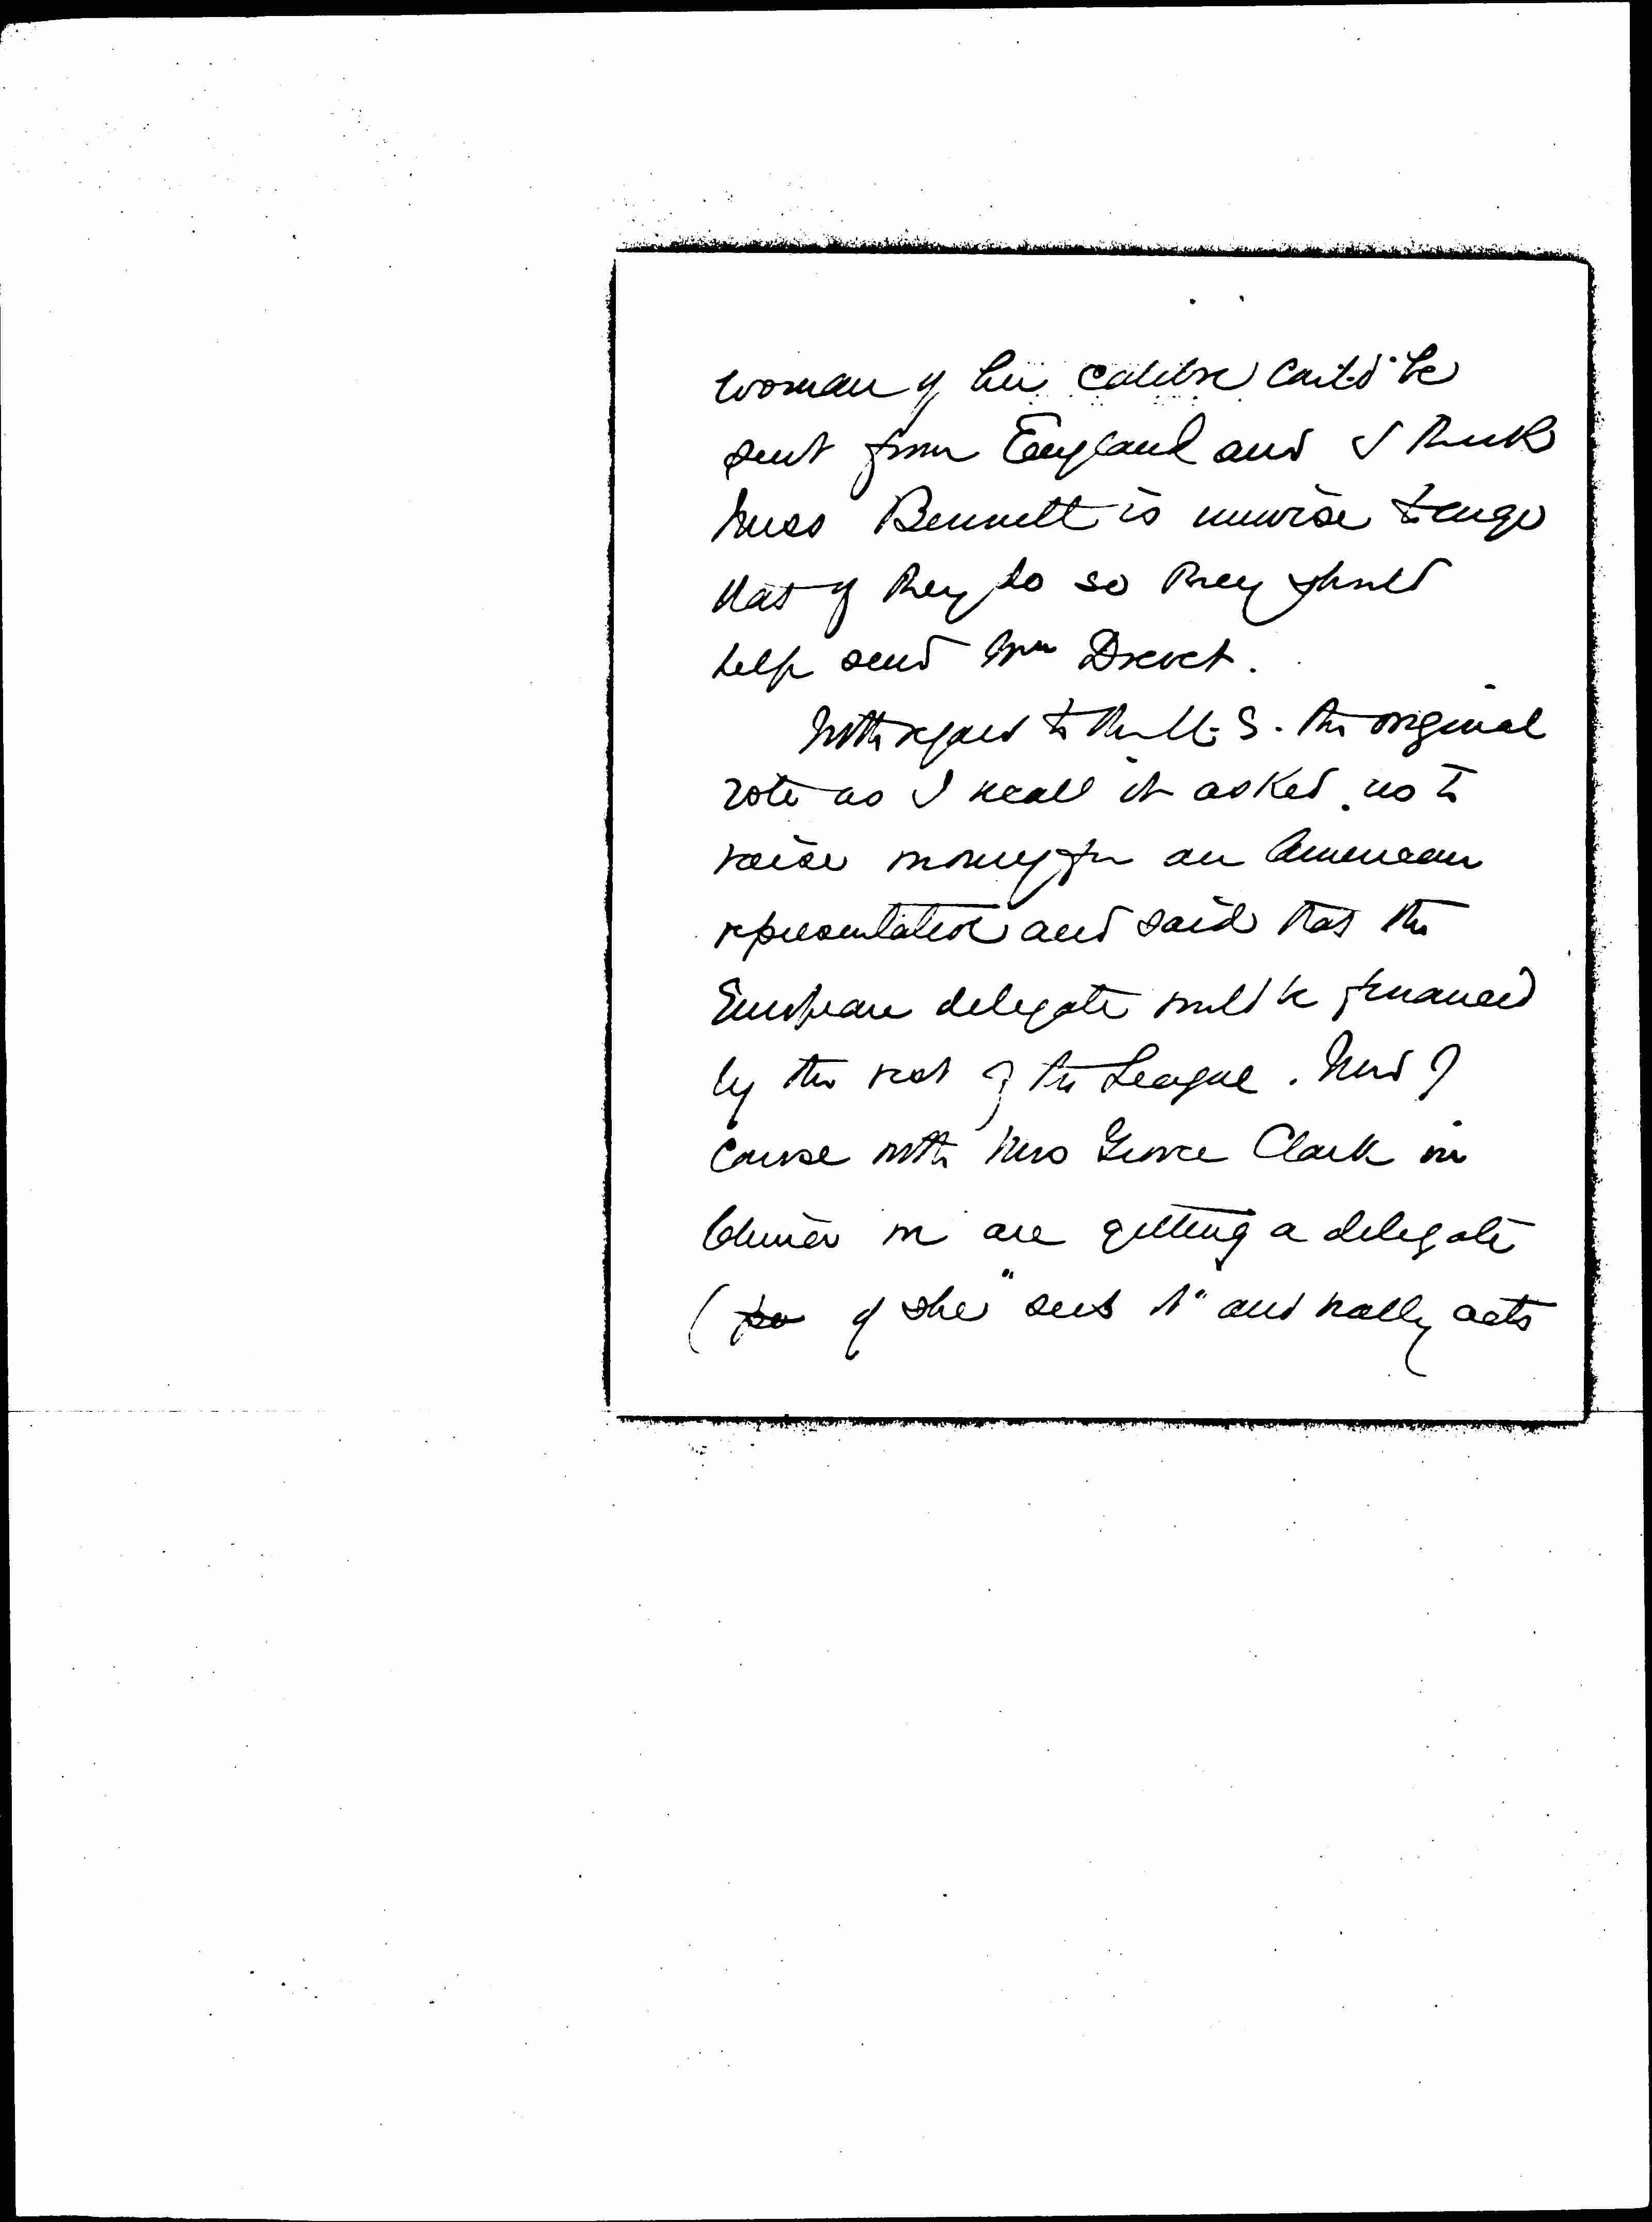 woman of her calibre could be
sent from England and I think
Miss Bennett is unwise to urge
that if they do so they should
help send Mme Drevet.
With regard to the U.S. the original
vote as I recall it asked us to
raise money for an American
representative and said that the
European delegate would be financed
by the rest of the League. Now of
course with Mrs Grover Clark in
China we are getting a delegate
( if she "sees it" and really acts